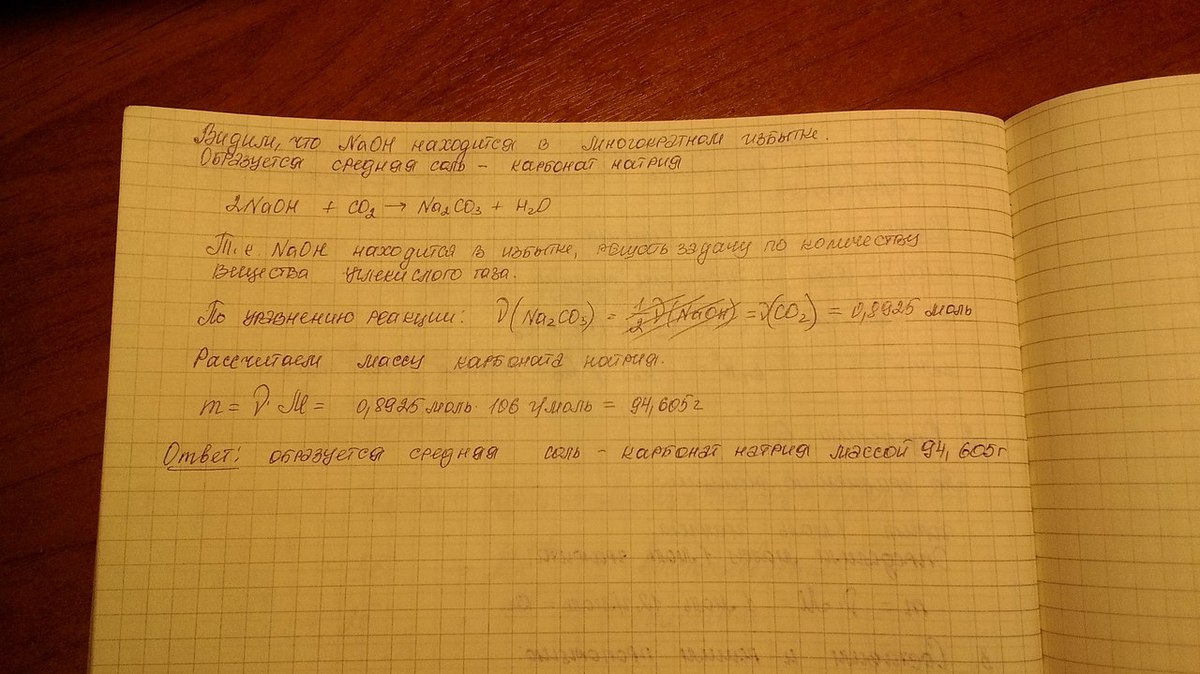 Видим, что NaOH находится в многократном избытке.
Образуется средняя соль – карбонат натрия
2NaOH + CO₂ → Na₂CO₃ + H₂O
Т.к NaOH находится в избытке, решать задачу по количеству
вещества углекислого газа.
По уравнению реакции: ν(Na₂CO₃) = 1/2 ν(NaOH) = ν(CO₂) = 0,8925 моль
Рассчитаем массу карбоната натрия.
m = ν · M = 0,8925 моль · 106 г/моль = 94,605 г
Ответ: образуется средняя соль – карбонат натрия массой 94,605 г